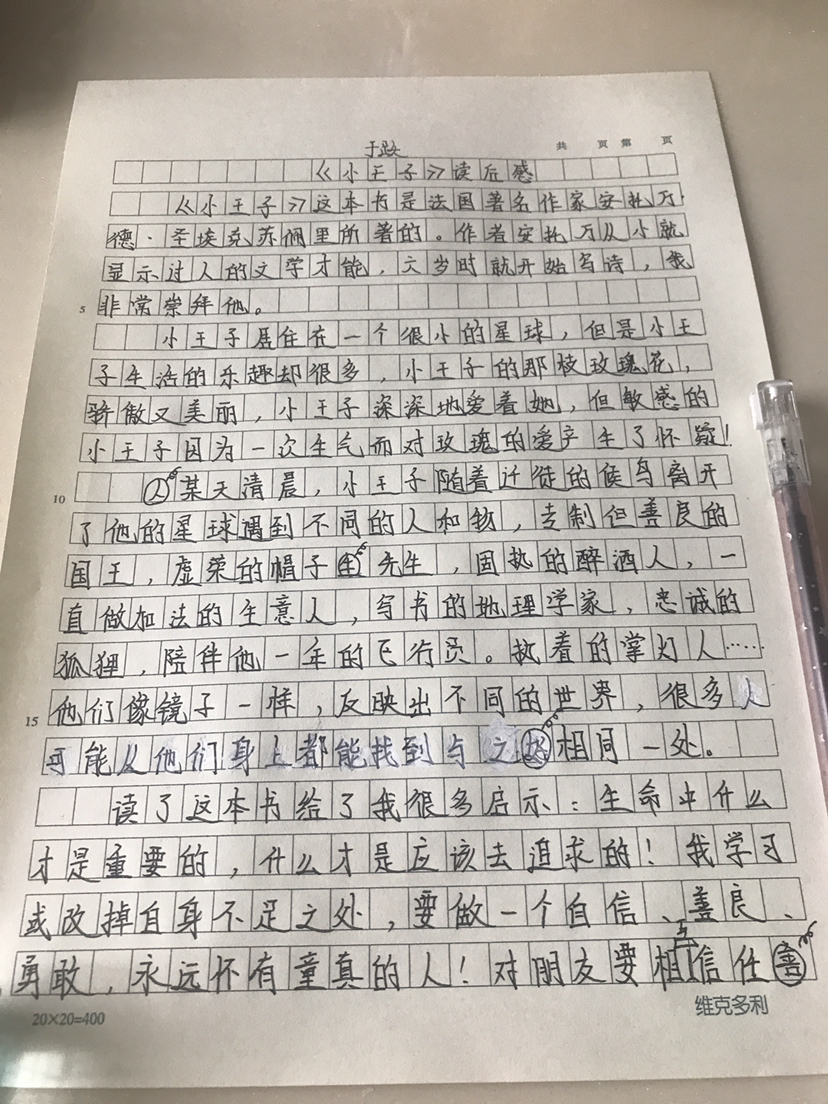 于跃
共 页 第 页
《小王子》读后感
《小王子》这本书是法国著名作家安托万·
德·圣埃克苏佩里所著的。作者安托万从小就
显示过人的文学才能，六岁时就开始写诗，我
5
非常崇拜他。
小王子居住在一个很小的星球，但是小王
子生活的乐趣却很多，小王子的那枝玫瑰花，
骄傲又美丽，小王子深深地爱着她，但敏感的
小王子因为一次生气而对玫瑰的爱产生了怀疑！
10
某天清晨，小王子随着迁徙的候鸟离开
了他的星球遇到不同的人和物，专制但善良的
国王，虚荣的帽子先生，固执的醉酒人，一
直做加法的生意人，写书的地理学家，忠诚的
狐狸，陪伴他一年的飞行员。执着的掌灯人……
15
他们像镜子一样，反映出不同的世界，很多人
可能从他们身上都能找到与之相同一处。
读了这本书给了我很多启示：生命中什么
才是重要的，什么才是应该去追求的！我学习
或改掉自身不足之处，要做一个自信、善良、
勇敢，永远怀有童真的人！对朋友要相互信任
20×20=400
维克多利